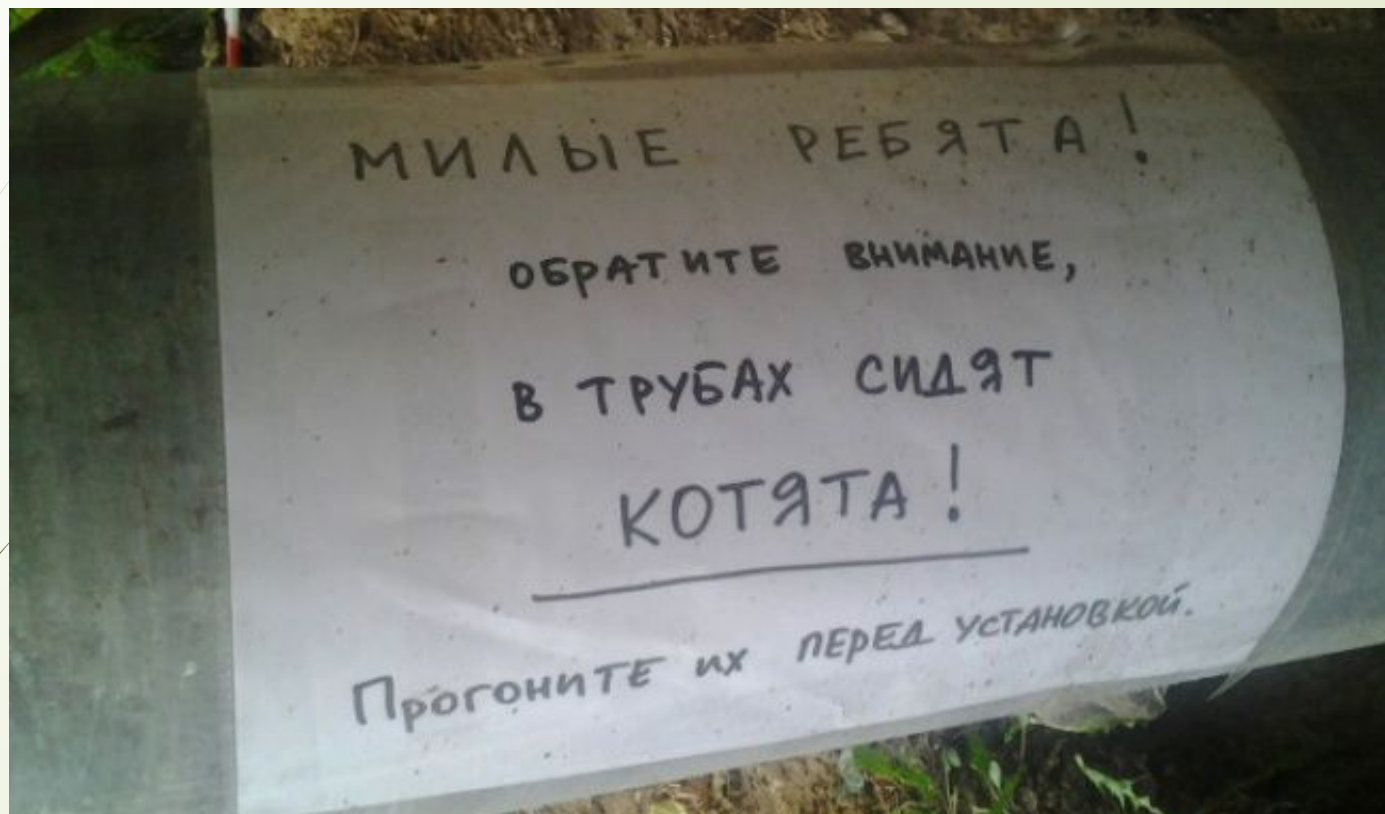 МИЛЫЕ РЕБЯТА!
ОБРАТИТЕ ВНИМАНИЕ,
В ТРУБАХ СИДЯТ
КОТЯТА!
ПрогониТЕ их ПЕРЕД УСТАНОВКОЙ.